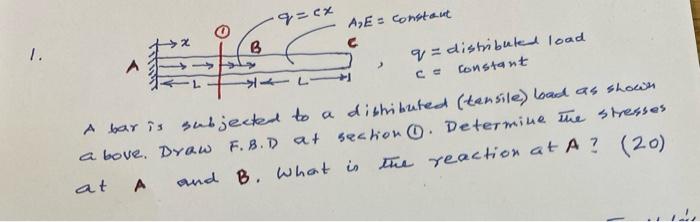 q = cx
A,E = constant
1.
x
①
B
C
A
q = distributed load
L
L
,
c = constant
A bar is subjected to a distributed (tensile) load as shown
above. Draw F.B.D at section ①. Determine the stresses
at A and B. What is the reaction at A? (20)